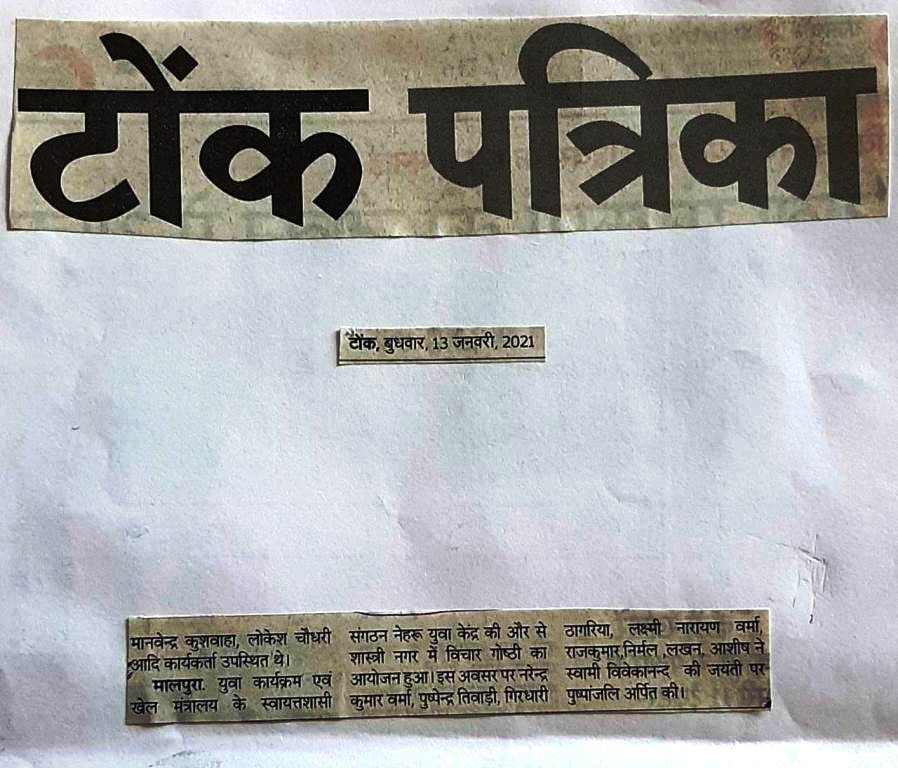 टोंक पत्रिका
टोंक, बुधवार, 13 जनवरी, 2021
मानवेन्द्र कुशवाहा, लोकेश चौधरी
आदि कार्यकर्ता उपस्थित थे।
मालपुरा. युवा कार्यक्रम एवं
खेल मंत्रालय के स्वायत्तशासी
संगठन नेहरू युवा केंद्र की और से
शास्त्री नगर में विचार गोष्ठी का
आयोजन हुआ। इस अवसर पर नरेन्द्र
कुमार वर्मा, पुष्पेन्द्र तिवाड़ी, गिरधारी
ठागरिया, लक्ष्मी नारायण वर्मा,
राजकुमार,निर्मल, लखन, आशीष ने
स्वामी विवेकानन्द की जयंती पर
पुष्पांजलि अर्पित की।